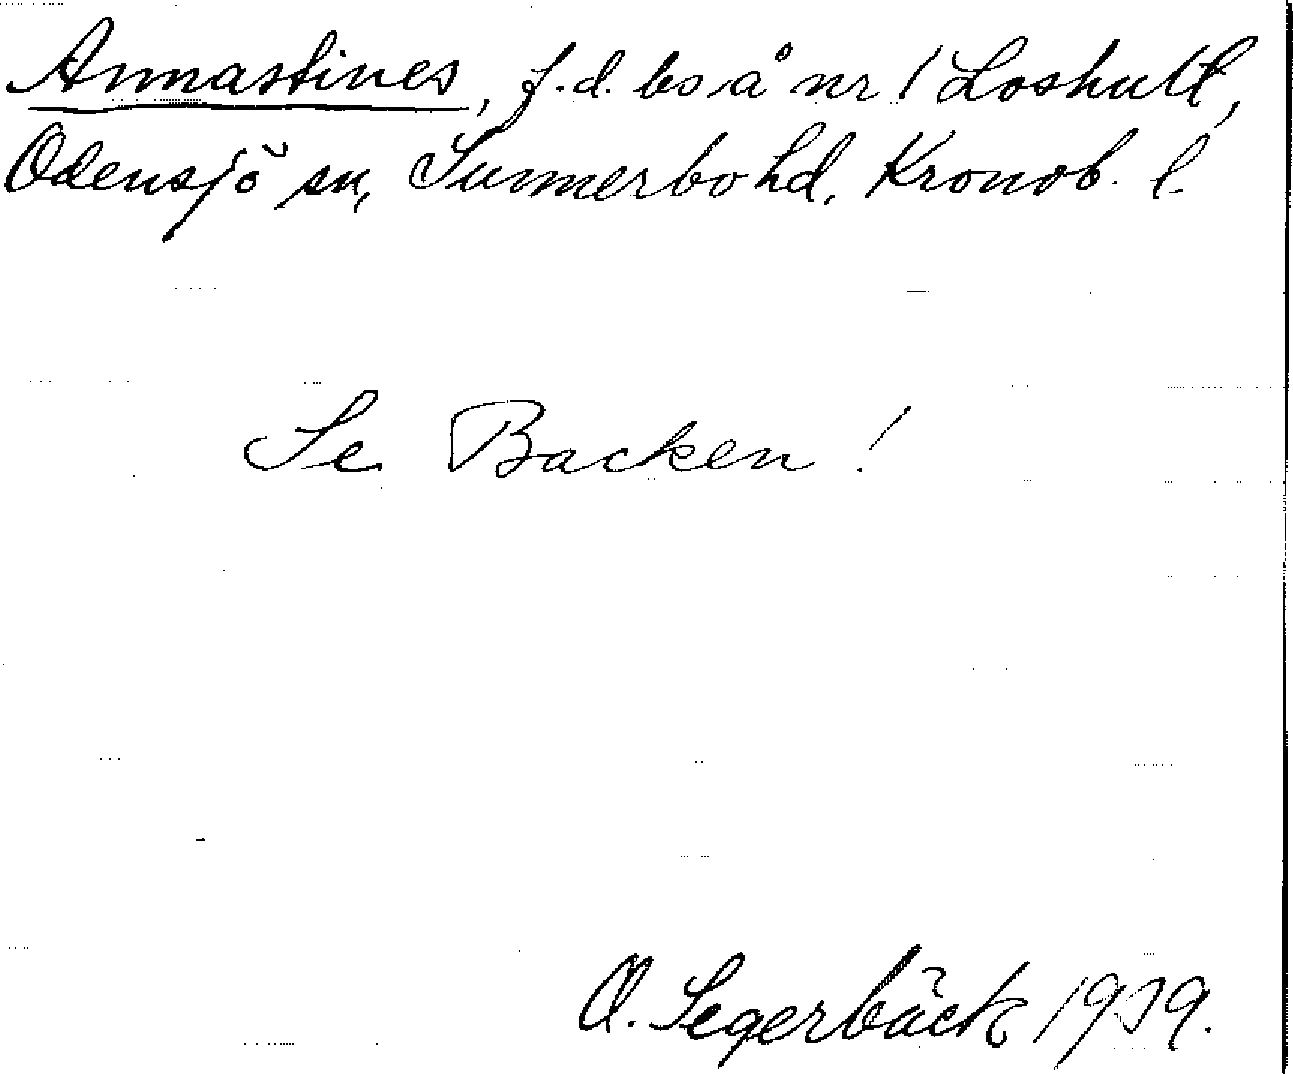 Annastines, f.d. bs å nr 1 Loshult,
Odensjö sn, Sunnerbo hd, Kronob. l.
Se Backen!
A. Segerbäck 1939.